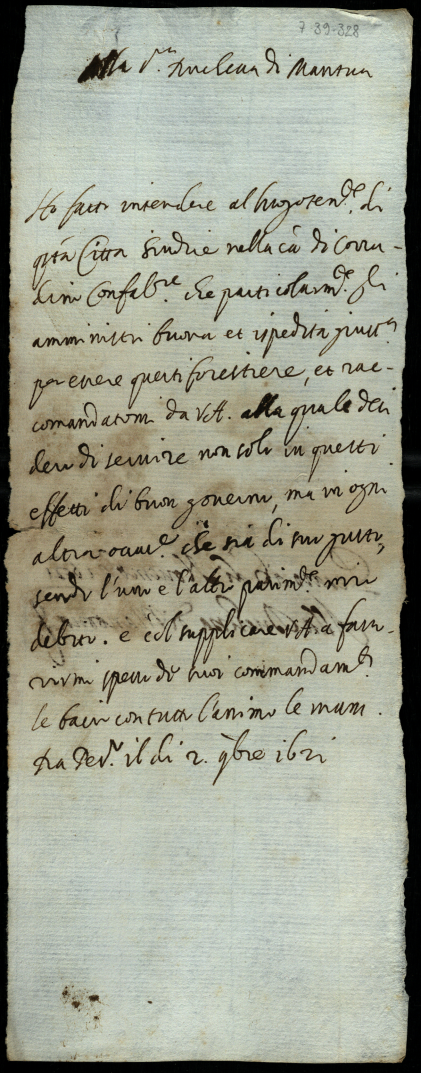 7 39-328
Alla S.ra Duchessa di Mantua
Ho fatto intendere al luogoten.te di
q.ta Città Giudice nella cã di Corra-
dino Confab.re che particolarm.te gli
amministri buona et ispedita giust.a
per essere questi forestiere, et rac-
comandatomi da V.A. alla quale desi
dero di servire non solo in questi
effetti di buon governo, ma in ogni
altra occas.e che sia di suo gusto,
sendo l'uno e l'altro parim.te mio
debito. e col supplicare V.A. a favo-
rirmi spesso de suoi commandam.ti
le bacio con tutto l'animo le mani.
Da il di 2. 9bre 1621